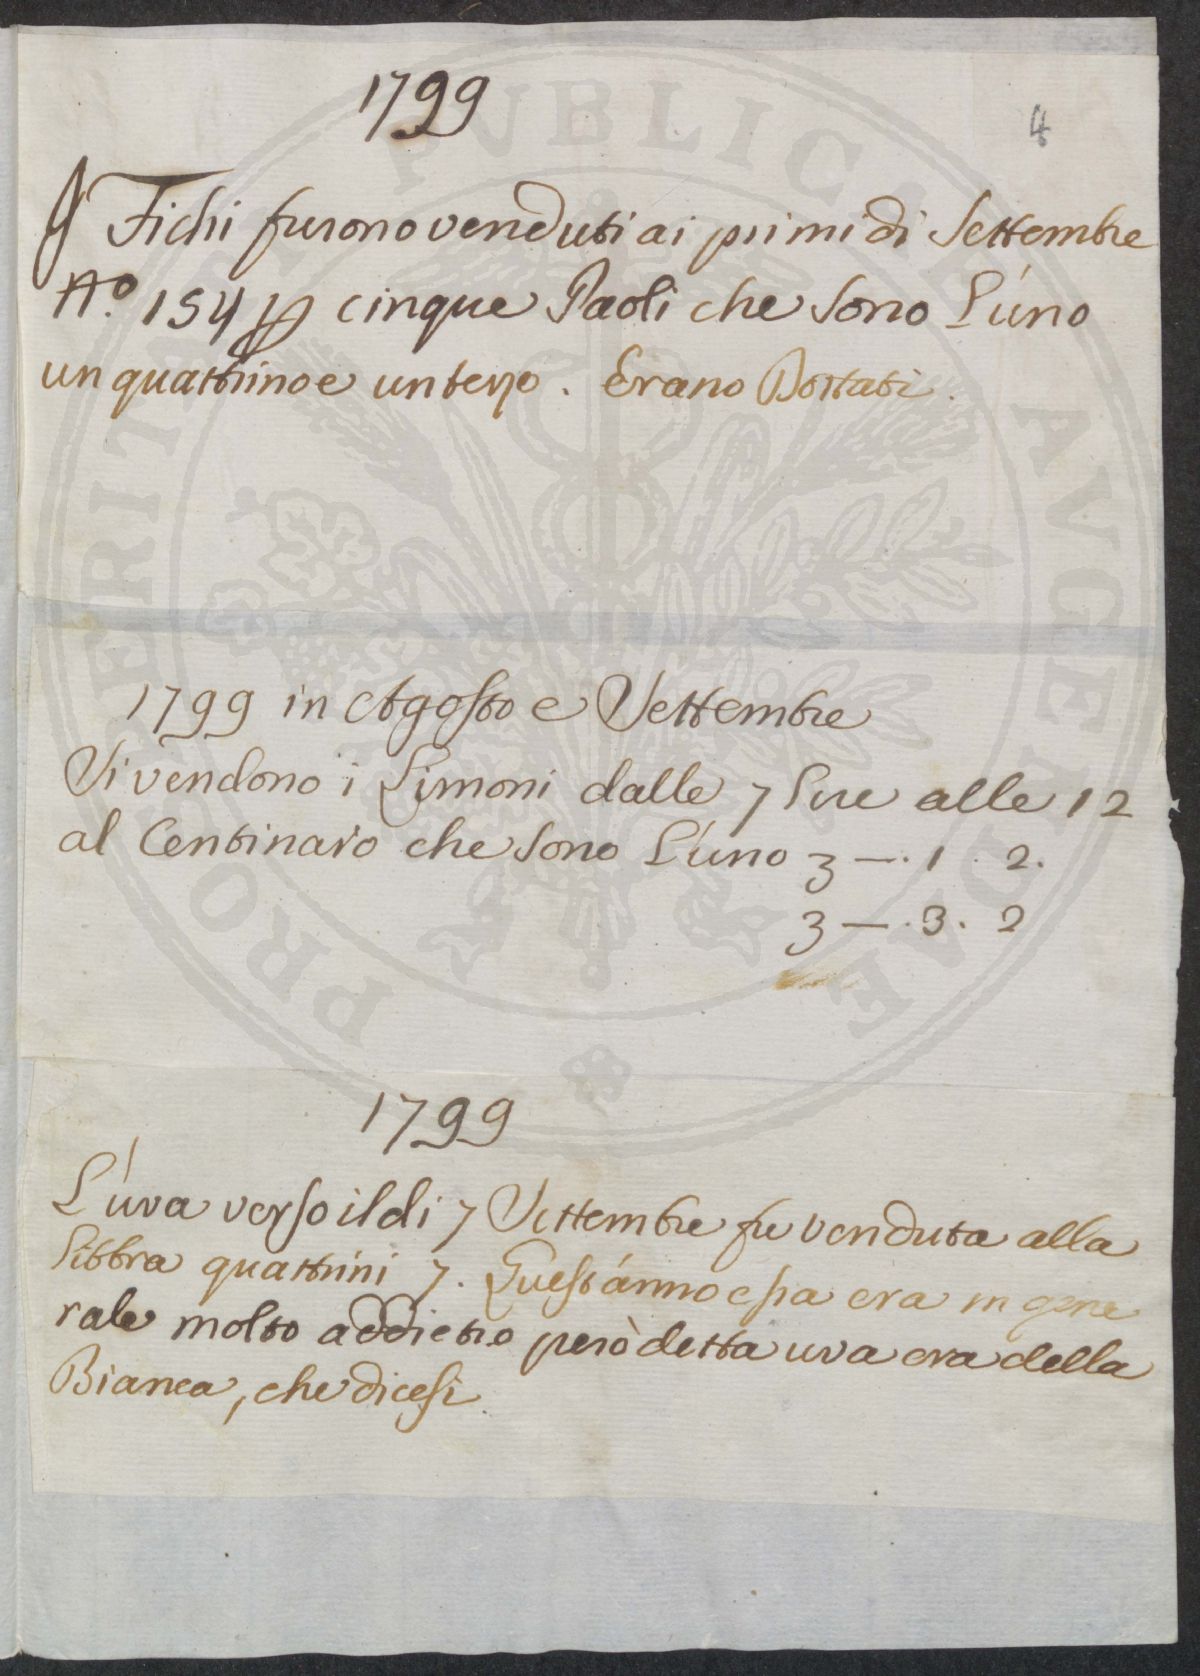 1799
4
I Fichi furono venduti ai primi di Settembre
N.º 154 p cinque Paoli che sono L'uno
un quattrino e un terzo. Erano Dottati.
1799 in Agosto e Settembre
Si vendono i Limoni dalle 7 Lire alle 12
al Centinaro che sono L'uno 3 —. 1. 2.
3 —. 3. 2
1799
L'uva verso il di 7 Settembre fu venduta alla
Libbra quattrini 7. Quest'anno essa era in gene
rale molto addietro però detta uva era della
Bianca, che dicesi
PROSPERITATI PVBLICAE AVGENDAE